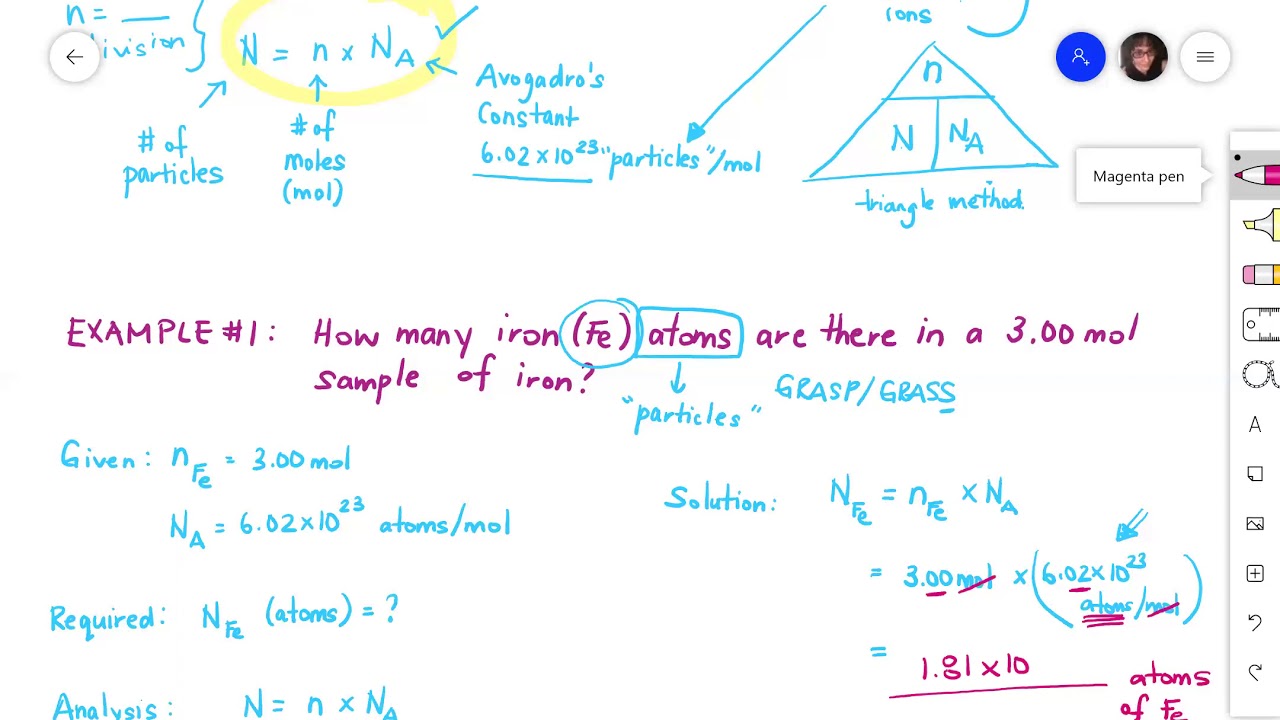 n = ___
division
N = n × N_A
Avogadro's
Constant
6.02 × 10^23 "particles"/mol
# of
particles
# of
moles
(mol)
ions
n
N N_A
triangle method.
Magenta pen
EXAMPLE #1: How many iron (Fe) atoms are there in a 3.00 mol
sample of iron?
"particles"
GRASP/GRASS
Given: n_Fe = 3.00 mol
N_A = 6.02 × 10^23 atoms/mol
Required: N_Fe (atoms) = ?
Analysis: N = n × N_A
Solution: N_Fe = n_Fe × N_A
= 3.00 mol × (6.02 × 10^23
atoms/mol)
= 1.81 × 10 atoms
of Fe
A